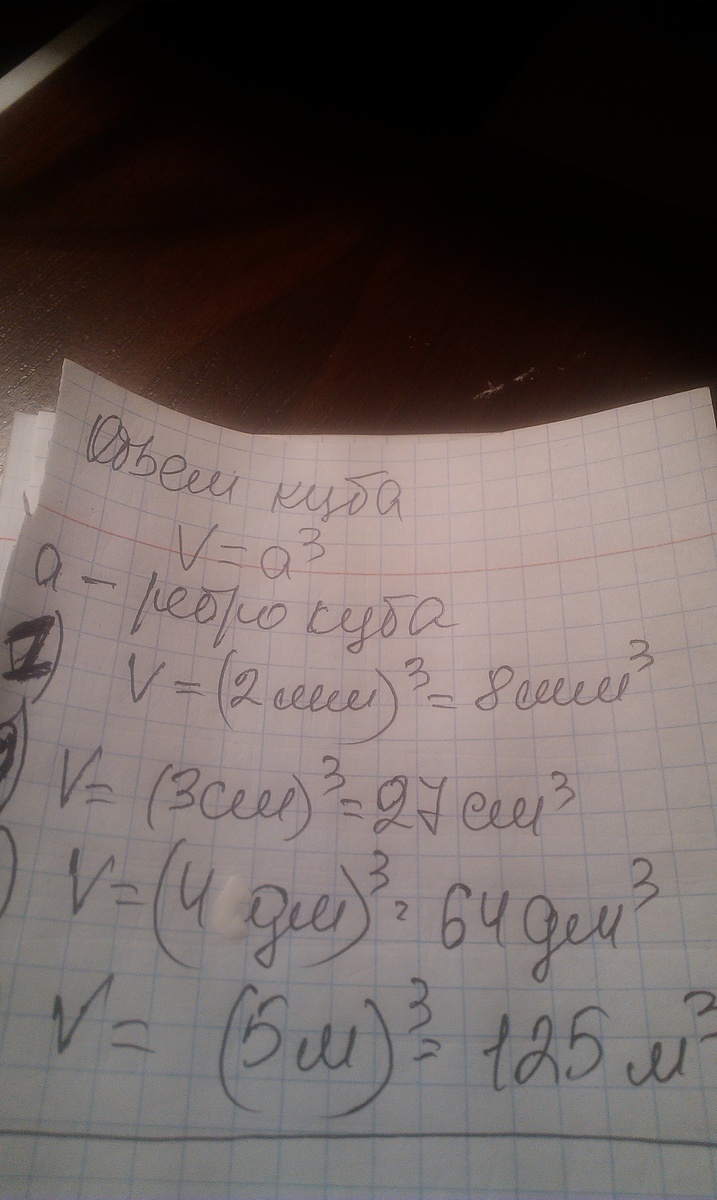 Объем куба
V = a³
a – ребро куба
1) V = (2 мм)³ = 8 мм³
V = (3 см)³ = 27 см³
) V = (4 дм)³ = 64 дм³
V = (5 м)³ = 125 м³